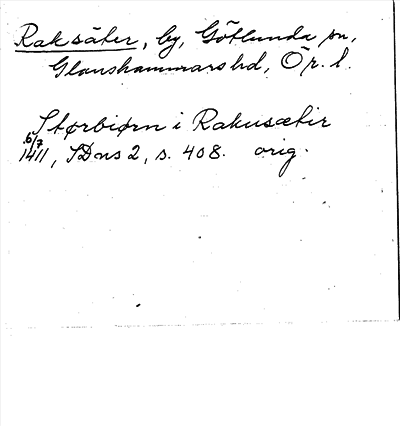 Raksäter, by, Götlunda sn,
Glanshammars hd, Ör. l.
Størbiørn i Rakusætir
6/7
1411, SD ns 2, s. 408. orig.